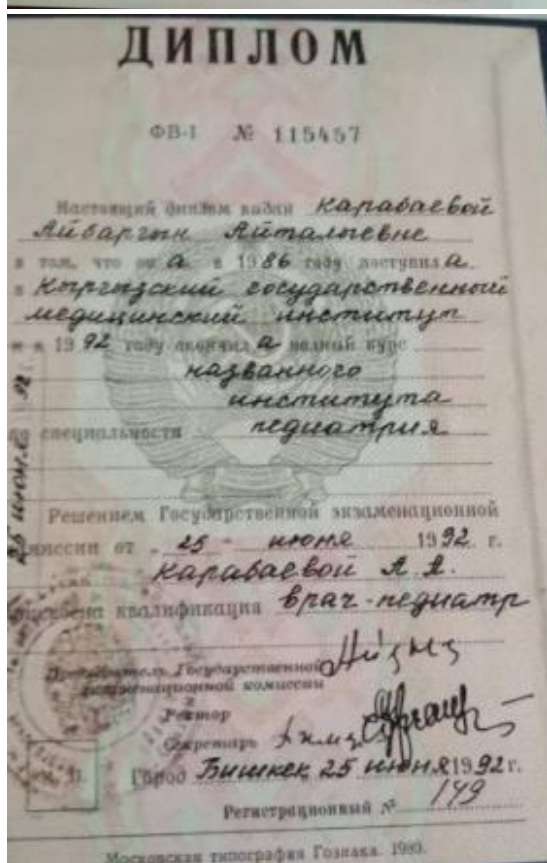 ДИПЛОМ
ФВ-I № 115457
Настоящий диплом выдан Карабаевой
Айбаргын Айталыевне
в том, что он а в 1986 году поступил а
в Кыргызский государственный
медицинский институт
и в 1992 году окончил а полный курс
названного
института
по специальности педиатрия
Решением Государственной экзаменационной
комиссии от 25 - июня 1992 г.
Карабаевой А. А.
присвоена квалификация врач-педиатр
Председатель Государственной
экзаменационной комиссии
Ректор
Секретарь
М. П. Город Бишкек, 25 июня 1992 г.
Регистрационный № 149
Московская типография Гознака. 1980.
25 июня 92